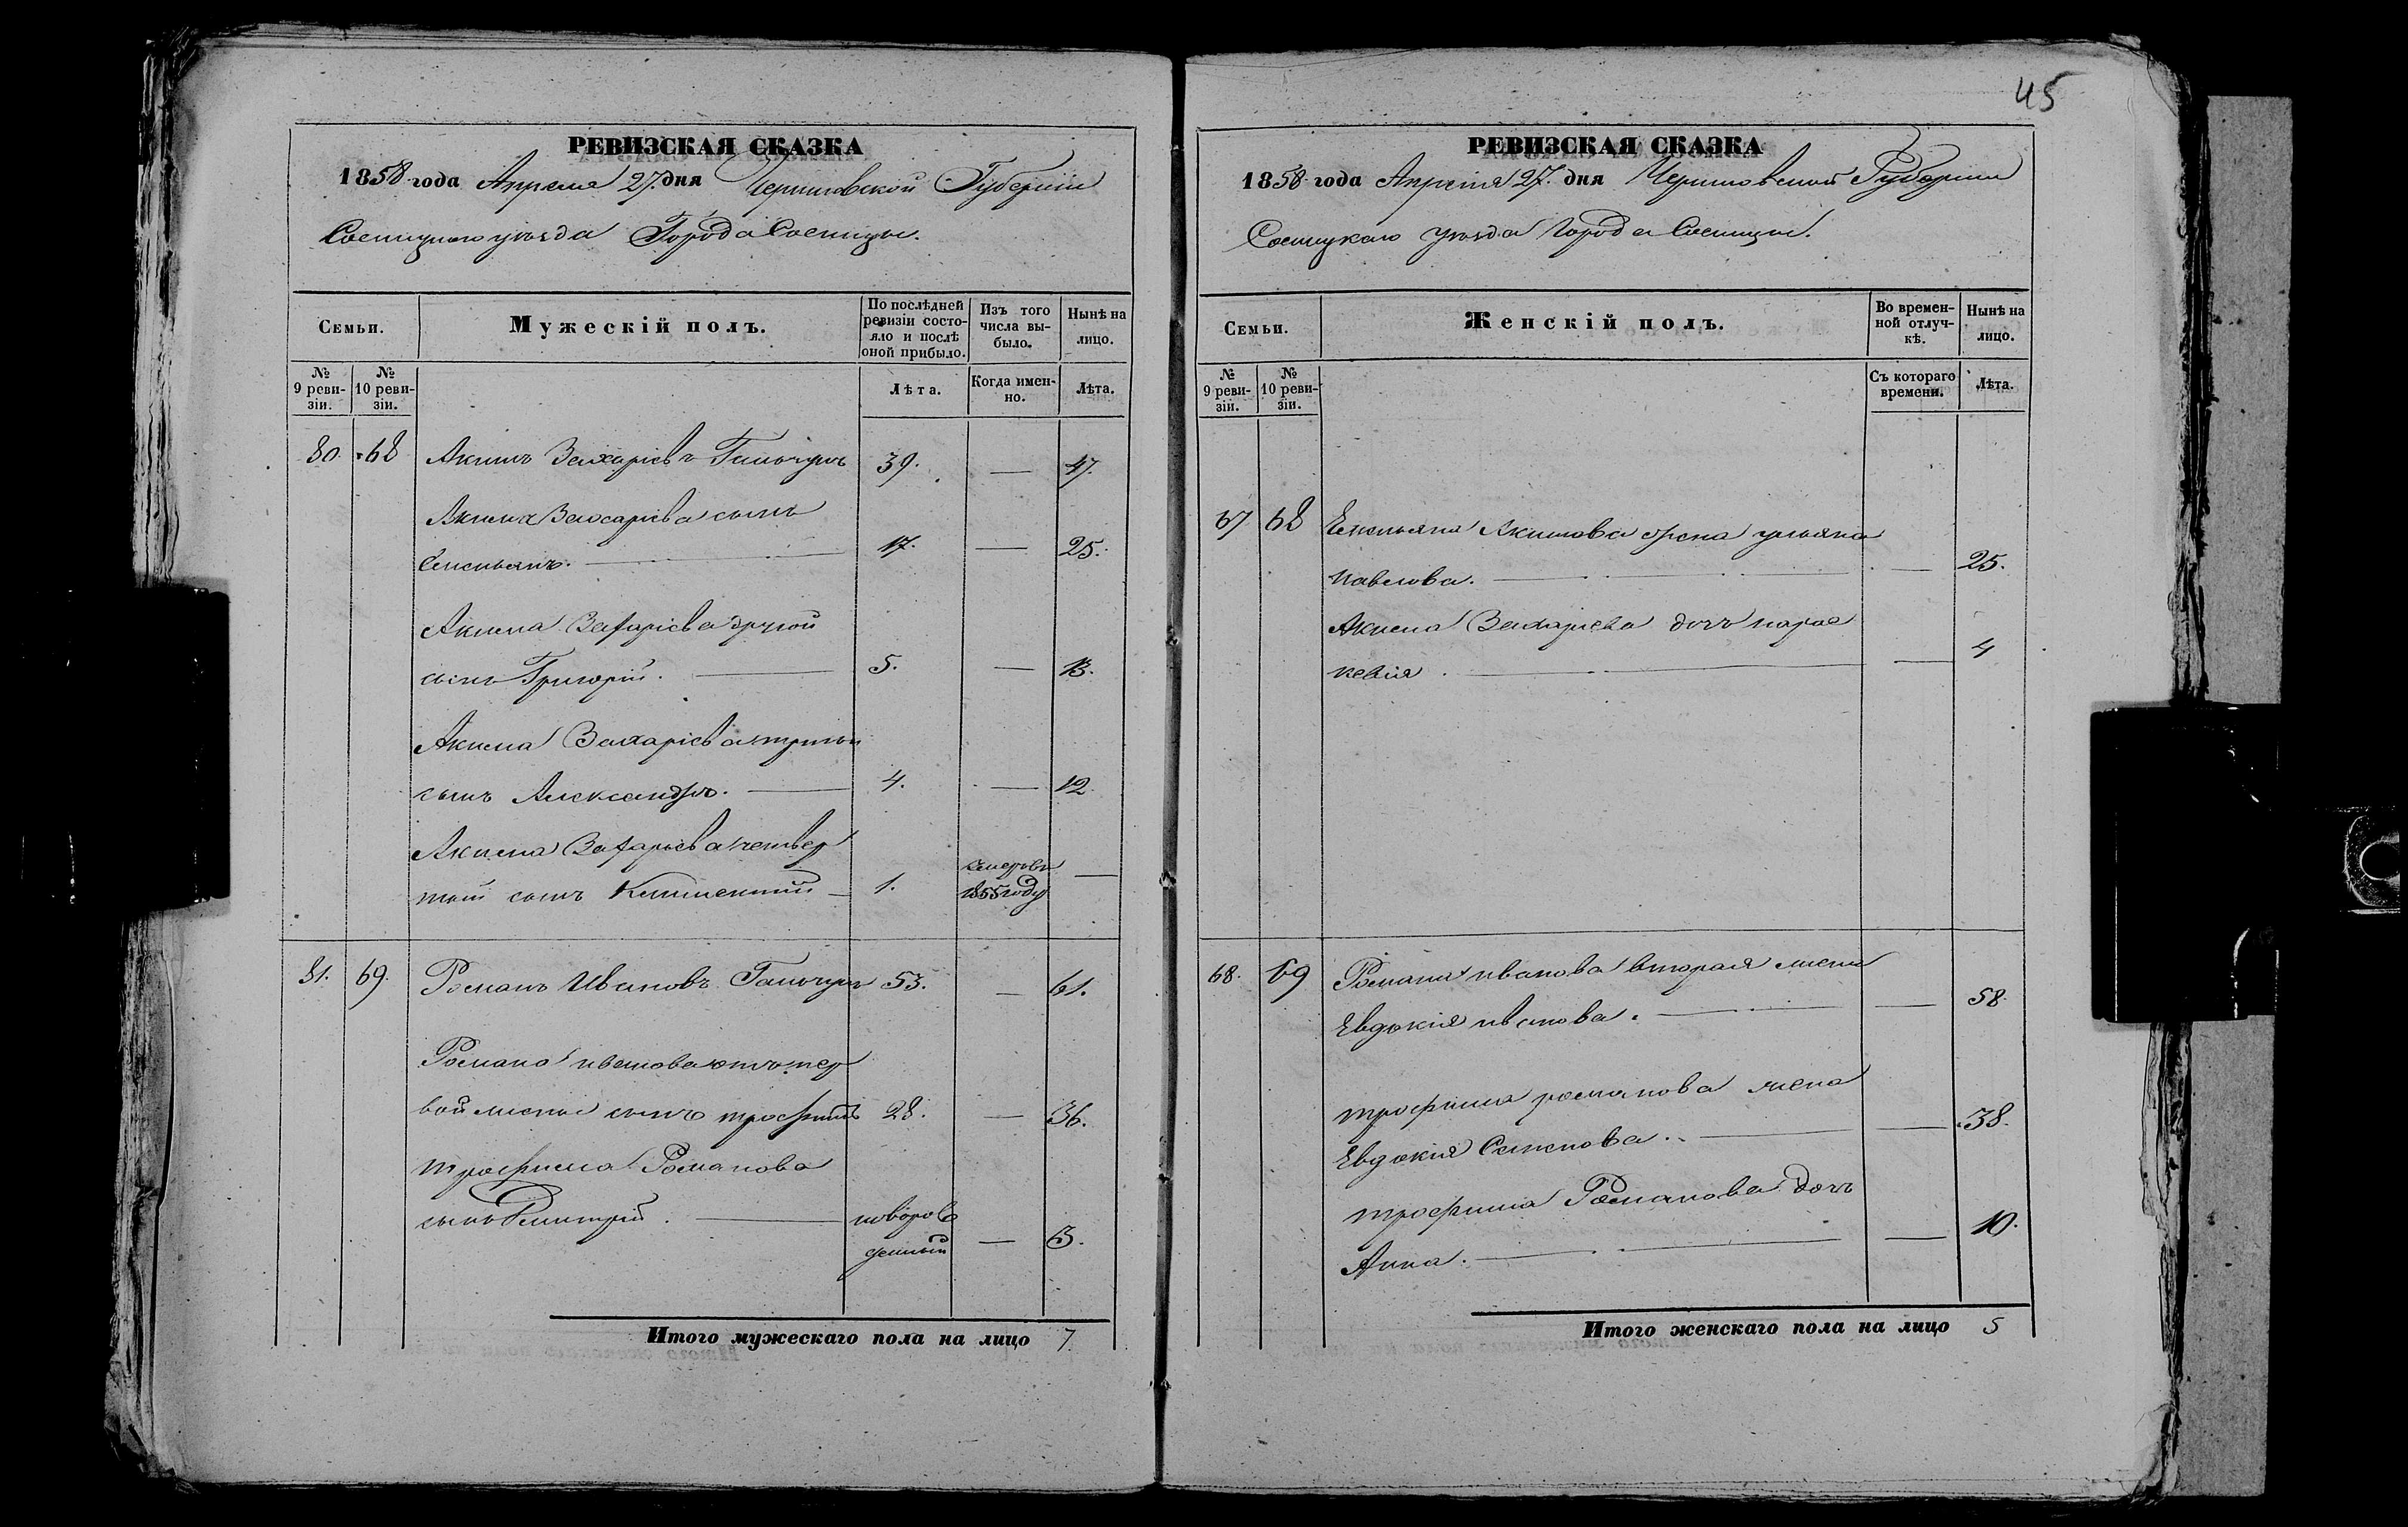 45
РЕВИЗСКАЯ СКАЗКА
1858 года Апреля 27. дня Черниговской Губерніи
Сосницкаго уѣзда Города Сосницы.
Семьи.
Мужескій полъ.
По послѣдней ревизіи состо-
яло и послѣ
оной прибыло.
Изъ того
числа вы-
было.
Нынѣ на
лицо.
№
9 реви-
зіи.
№
10 реви-
зіи.
Лѣта.
Когда имен-
но.
Лѣта.
80. 68 Акимъ Захаріевъ 39. — 47.
Акима Захаріева сынъ
Емельянъ. — 17. — 25.
Акима Захаріева другой
сынъ Григорій. — 5. — 13.
Акима Захаріева третій
сынъ Александръ. — 4. — 12.
Акима Захарьева четвер
тый сынъ Климентій — 1. умеръ въ 1855 году —
81. 69. Романъ Ивановъ 53. — 61.
Романа иванова отъ пер
вой жены сынъ трофимъ 28. — 36.
трофима Романова
сынъ Дмитрій. — новорож
денный — 3.
Итого мужескаго пола на лицо 7.
РЕВИЗСКАЯ СКАЗКА
1858 года Апреля 27. дня Черниговской Губернии
Сосницкаго уѣзда города Сосницы.
Семьи.
Женскій полъ.
Во времен-
ной отлуч-
кѣ.
Нынѣ на
лицо.
№
9 реви-
зіи.
№
10 реви-
зіи.
Съ котораго
времени.
Лѣта.
67 68 Емельяна Акимова жена ульяна
павлова. — — 25.
Акима Захариева дочь парас
кевія. — — 4
68. 69 Романа иванова вторая жена
Евдокия иванова. — — 58.
трофима романова жена
Евдокия Семенова. — — 38.
трофима Романова дочь
Анна. — — 10.
Итого женскаго пола на лицо 5